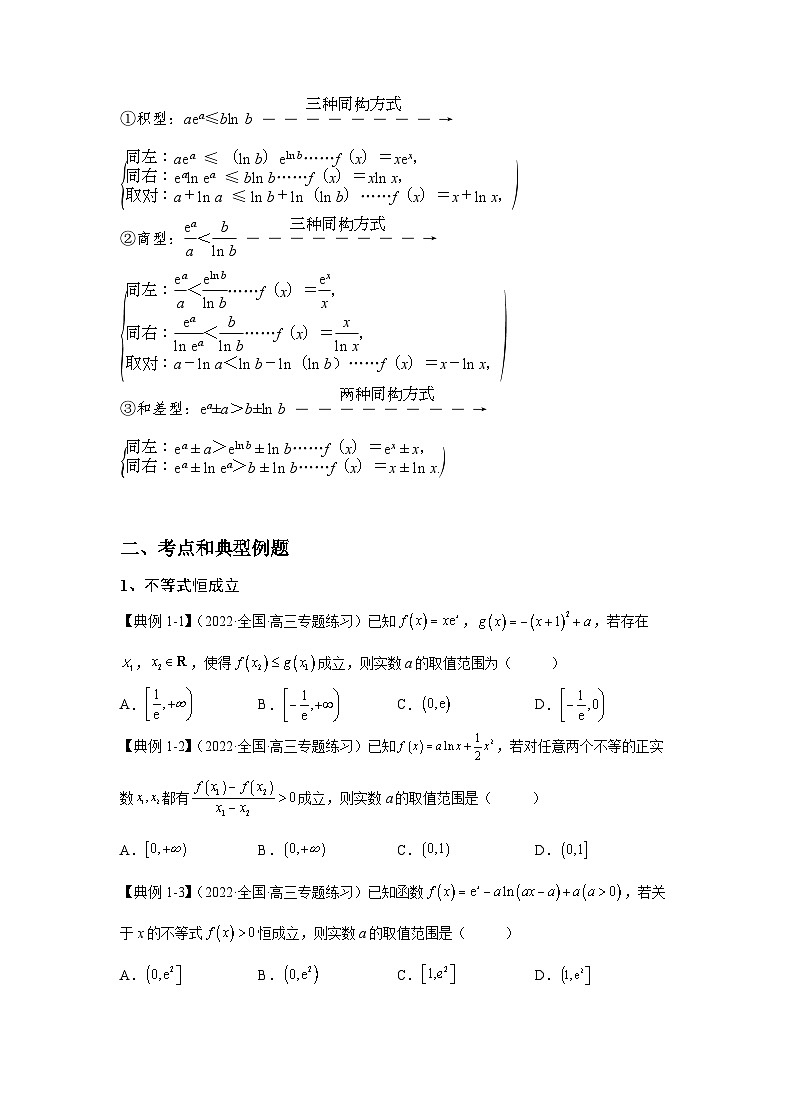 三种同构方式
①积型：aeᵃ≤bln b － － － － － － － － →
同左：aeᵃ ≤ （ln b）e^{ln b}……f（x）＝xeˣ，
同右：eᵃln eᵃ ≤ bln b……f（x）＝xln x，
取对：a＋ln a ≤ ln b＋ln（ln b）……f（x）＝x＋ln x，
三种同构方式
②商型：eᵃ/a＜b/ln b － － － － － － － － →
同左：eᵃ/a＜e^{ln b}/ln b……f（x）＝eˣ/x，
同右：eᵃ/ln eᵃ＜b/ln b……f（x）＝x/ln x，
取对：a－ln a＜ln b－ln（ln b）……f（x）＝x－ln x，
两种同构方式
③和差型：eᵃ±a＞b±ln b － － － － － － － － － →
同左：eᵃ ± a＞e^{ln b} ± ln b……f（x）＝eˣ ± x，
同右：eᵃ ± ln eᵃ＞b ± ln b……f（x）＝x ± ln x.
二、考点和典型例题
1、不等式恒成立
【典例 1-1】（2022·全国·高三专题练习）已知 f(x)= xeˣ，g(x)=−(x+1)²+a，若存在
x₁，x₂∈R，使得 f(x₂)≤g(x₁)成立，则实数 a 的取值范围为（　　）
A．[1/e,+∞)　B．[−1/e,+∞)　C．(0,e)　D．[−1/e,0)
【典例 1-2】（2022·全国·高三专题练习）已知 f(x)=a ln x+1/2x²，若对任意两个不等的正实
数 x₁,x₂都有(f(x₁)−f(x₂))/(x₁−x₂)>0成立，则实数 a 的取值范围是（　　）
A．[0,+∞)　B．(0,+∞)　C．(0,1)　D．(0,1]
【典例 1-3】（2022·全国·高三专题练习）已知函数 f(x)=eˣ−aln(ax−a)+a(a>0)，若关
于 x 的不等式 f(x)>0恒成立，则实数 a 的取值范围是（　　）
A．(0,e²]　B．(0,e²)　C．[1,e²]　D．(1,e²]